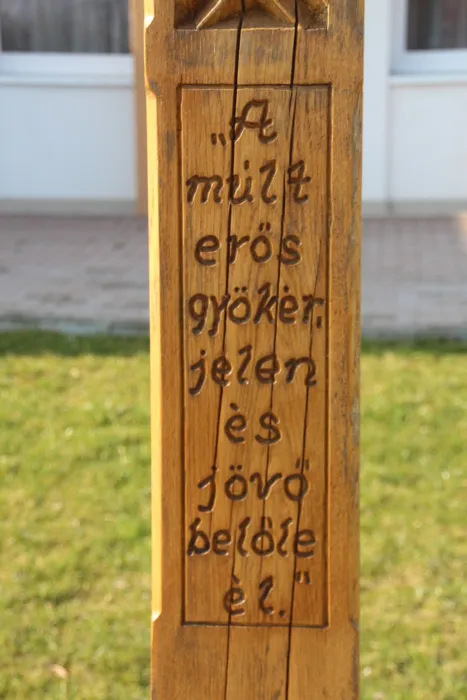 „A
múlt
erős
gyökér,
jelen
és
jövő
belőle
él."